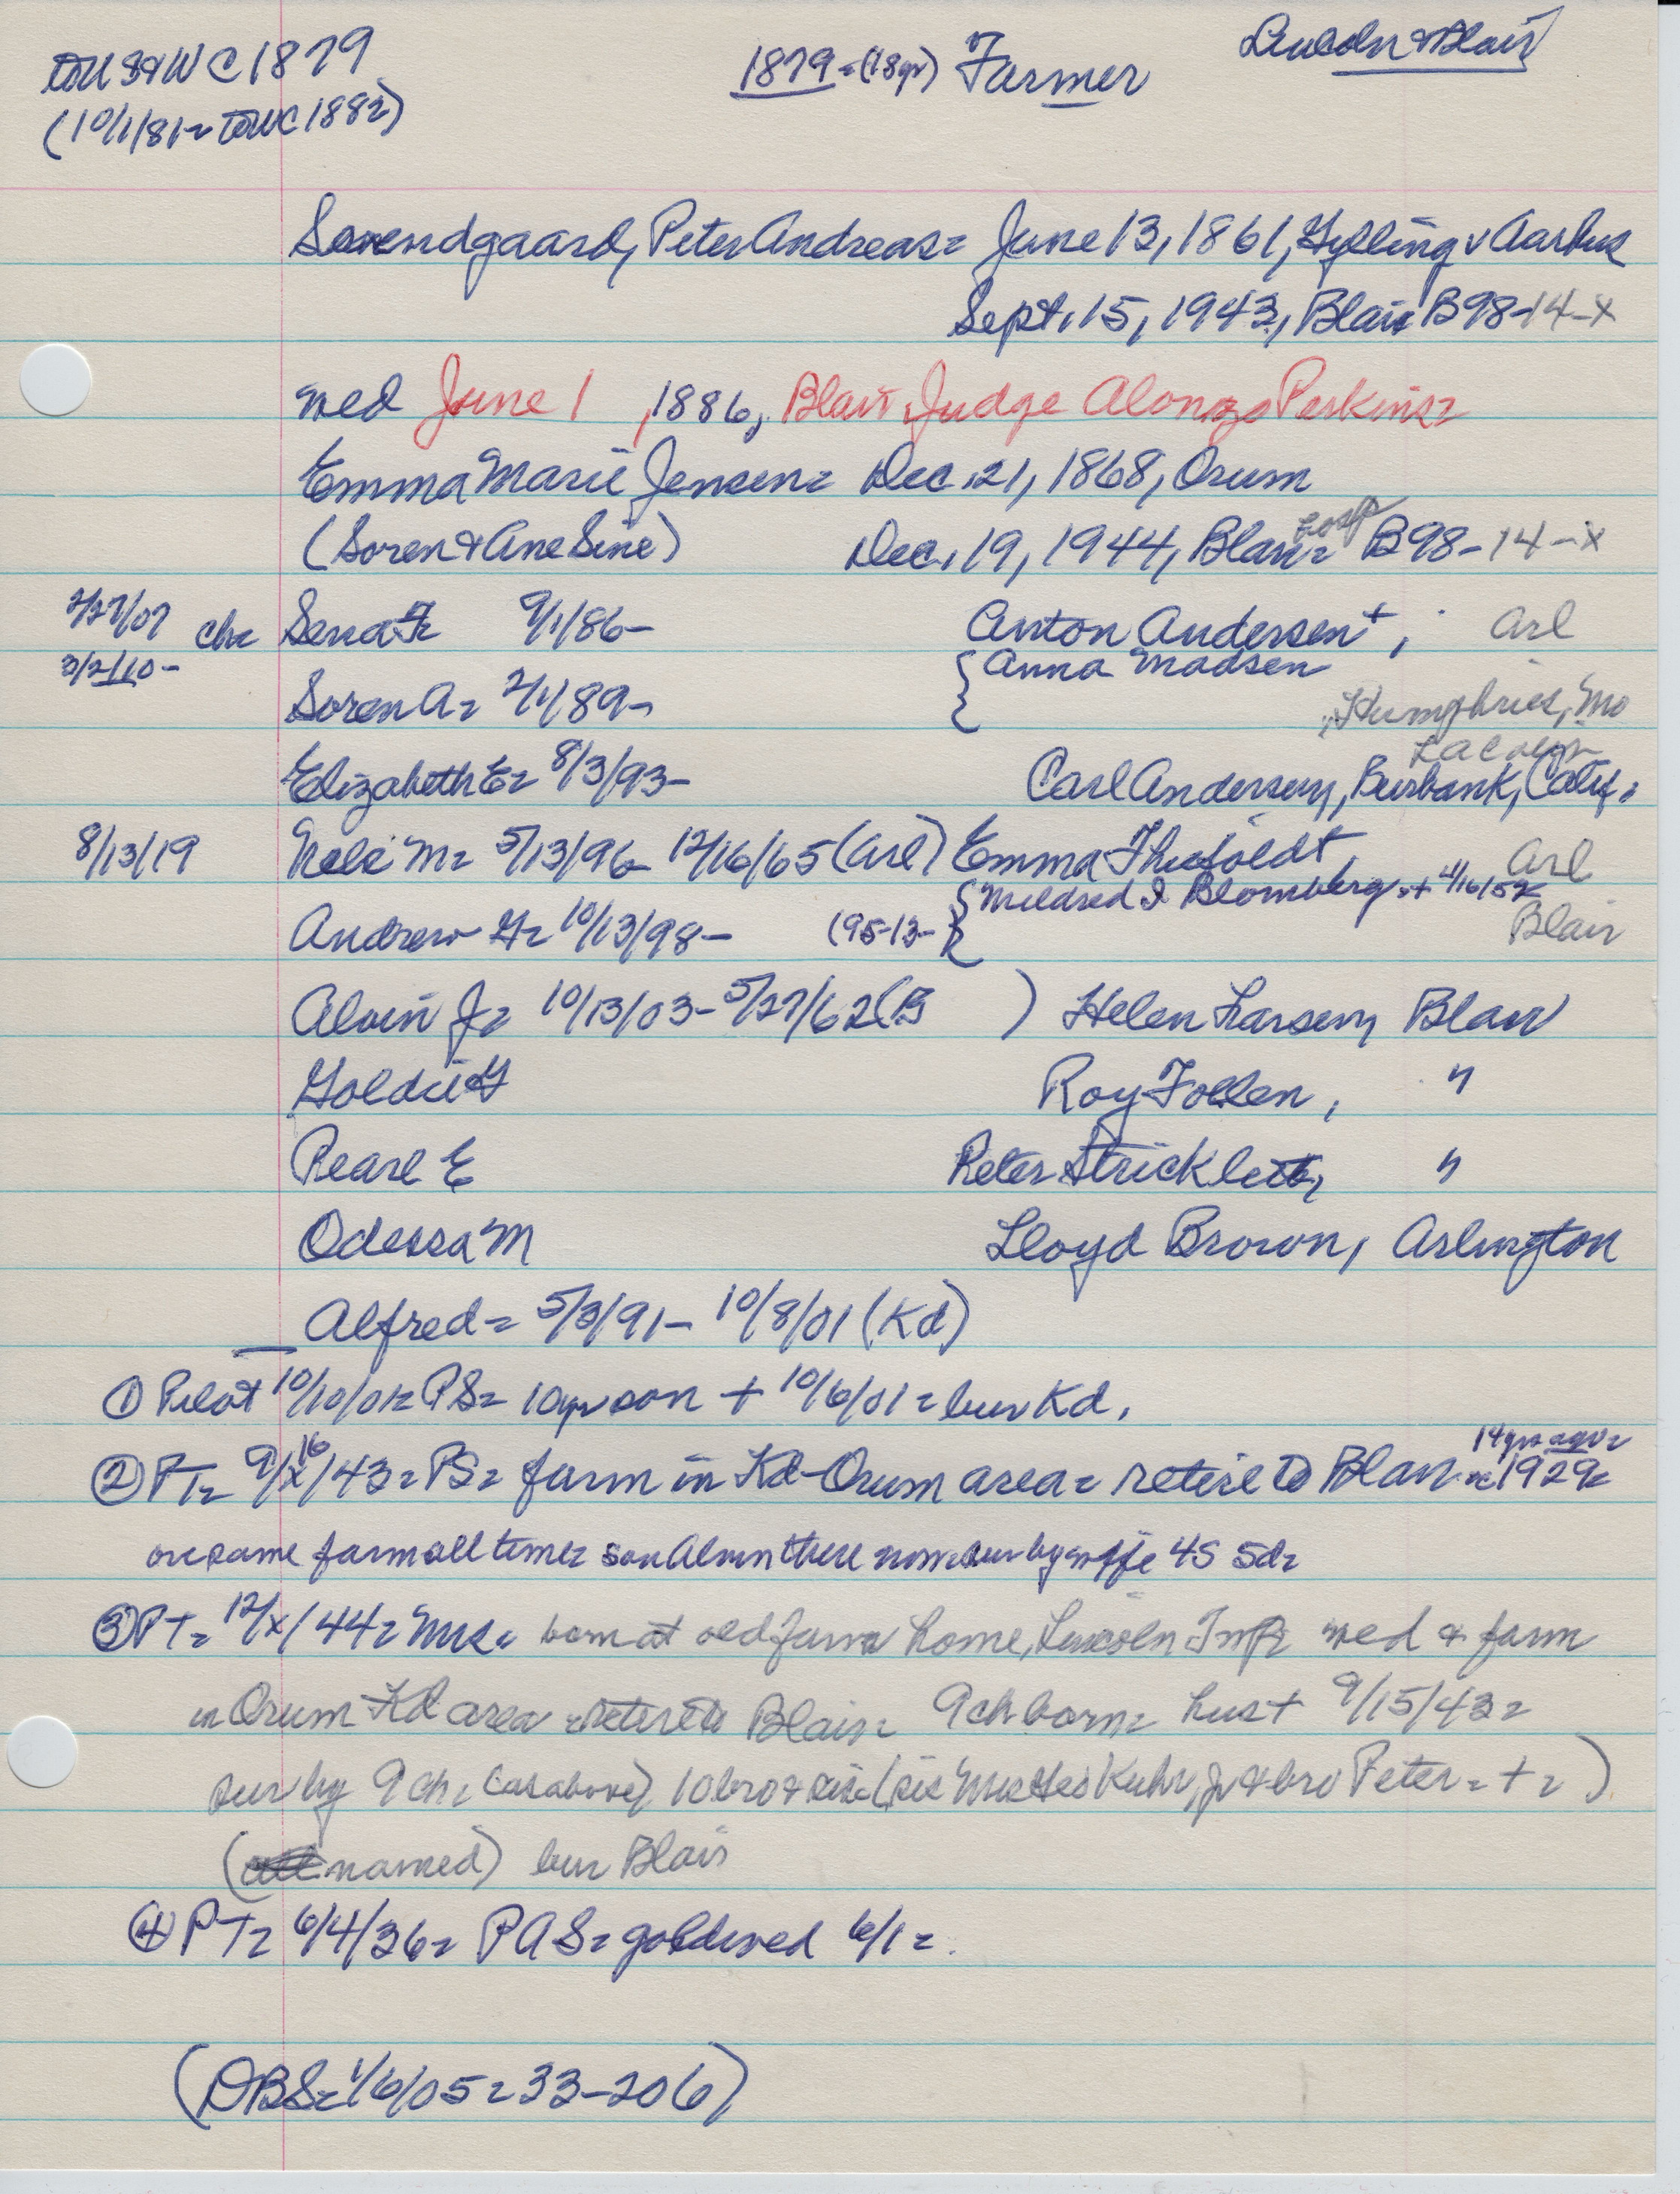 1879 = (18yr) Farmer
Lincoln & Blair
to US & WC 1879
(10/1/81 = to WC 1882)
Sorendgaard, Peter Andreas = June 13, 1861, Gylling v Aarhus
Sept. 15, 1943, Blair B98-14-x
med June 1, 1886, Blair, Judge Alonzo Perkins =
Emma Marie Jensen = Dec. 21, 1868, Orum
(Soren & Ane Sine) Dec. 19, 1944, Blair = hosp B98-14-x
2/27/07 ch = Sena F = 9/1/86- Anton Andersen +, Arl
3/2/10- { Anna Madsen
Soren A = 2/1/89- Humphries, Mo
Lacoln
Elizabeth E = 8/3/93- Carl Andersen, Burbank, Calif.
8/13/19 Nels M = 5/13/96- 12/16/65 (Arl) Emma Arl
{ Mildred I Blomberg + 4/16/52
Andrew H = 10/13/98- (95-13- Blair
Alvin J = 10/13/03- 5/27/62 (B ) Helen Larsen, Blair
Goldie G Roy Follen, "
Pearl E Peter Stricklett, "
Odessa M Lloyd Brown, Arlington
Alfred = 5/3/91- 10/8/01 (Kd)
① Pilot 10/10/01 = PS = 10 yr son + 10/6/01 = bur Kd.
14 yrs ago =
② PT = 9/16/43 = PS = farm in Kd-Orum area = retire to Blair in 1929 =
on same farm all time = son Alvin there now = sur by wife 4S 5d =
③ PT = 12/x/44 = Mrs = born at old farm home, Lincoln Twp = med & farm
in Orum Kd area = retire to Blair = 9 ch born = hus + 9/15/43 =
sur by 9 ch = (as above) 10 bro & sis = (sis Mrs Kuhr, Jr & bro Peter = + = )
(all named) bur Blair
④ PT = 6/4/36 = PAS = gold wed 6/1 =
(DBS = 1/6/05 = 33-206)